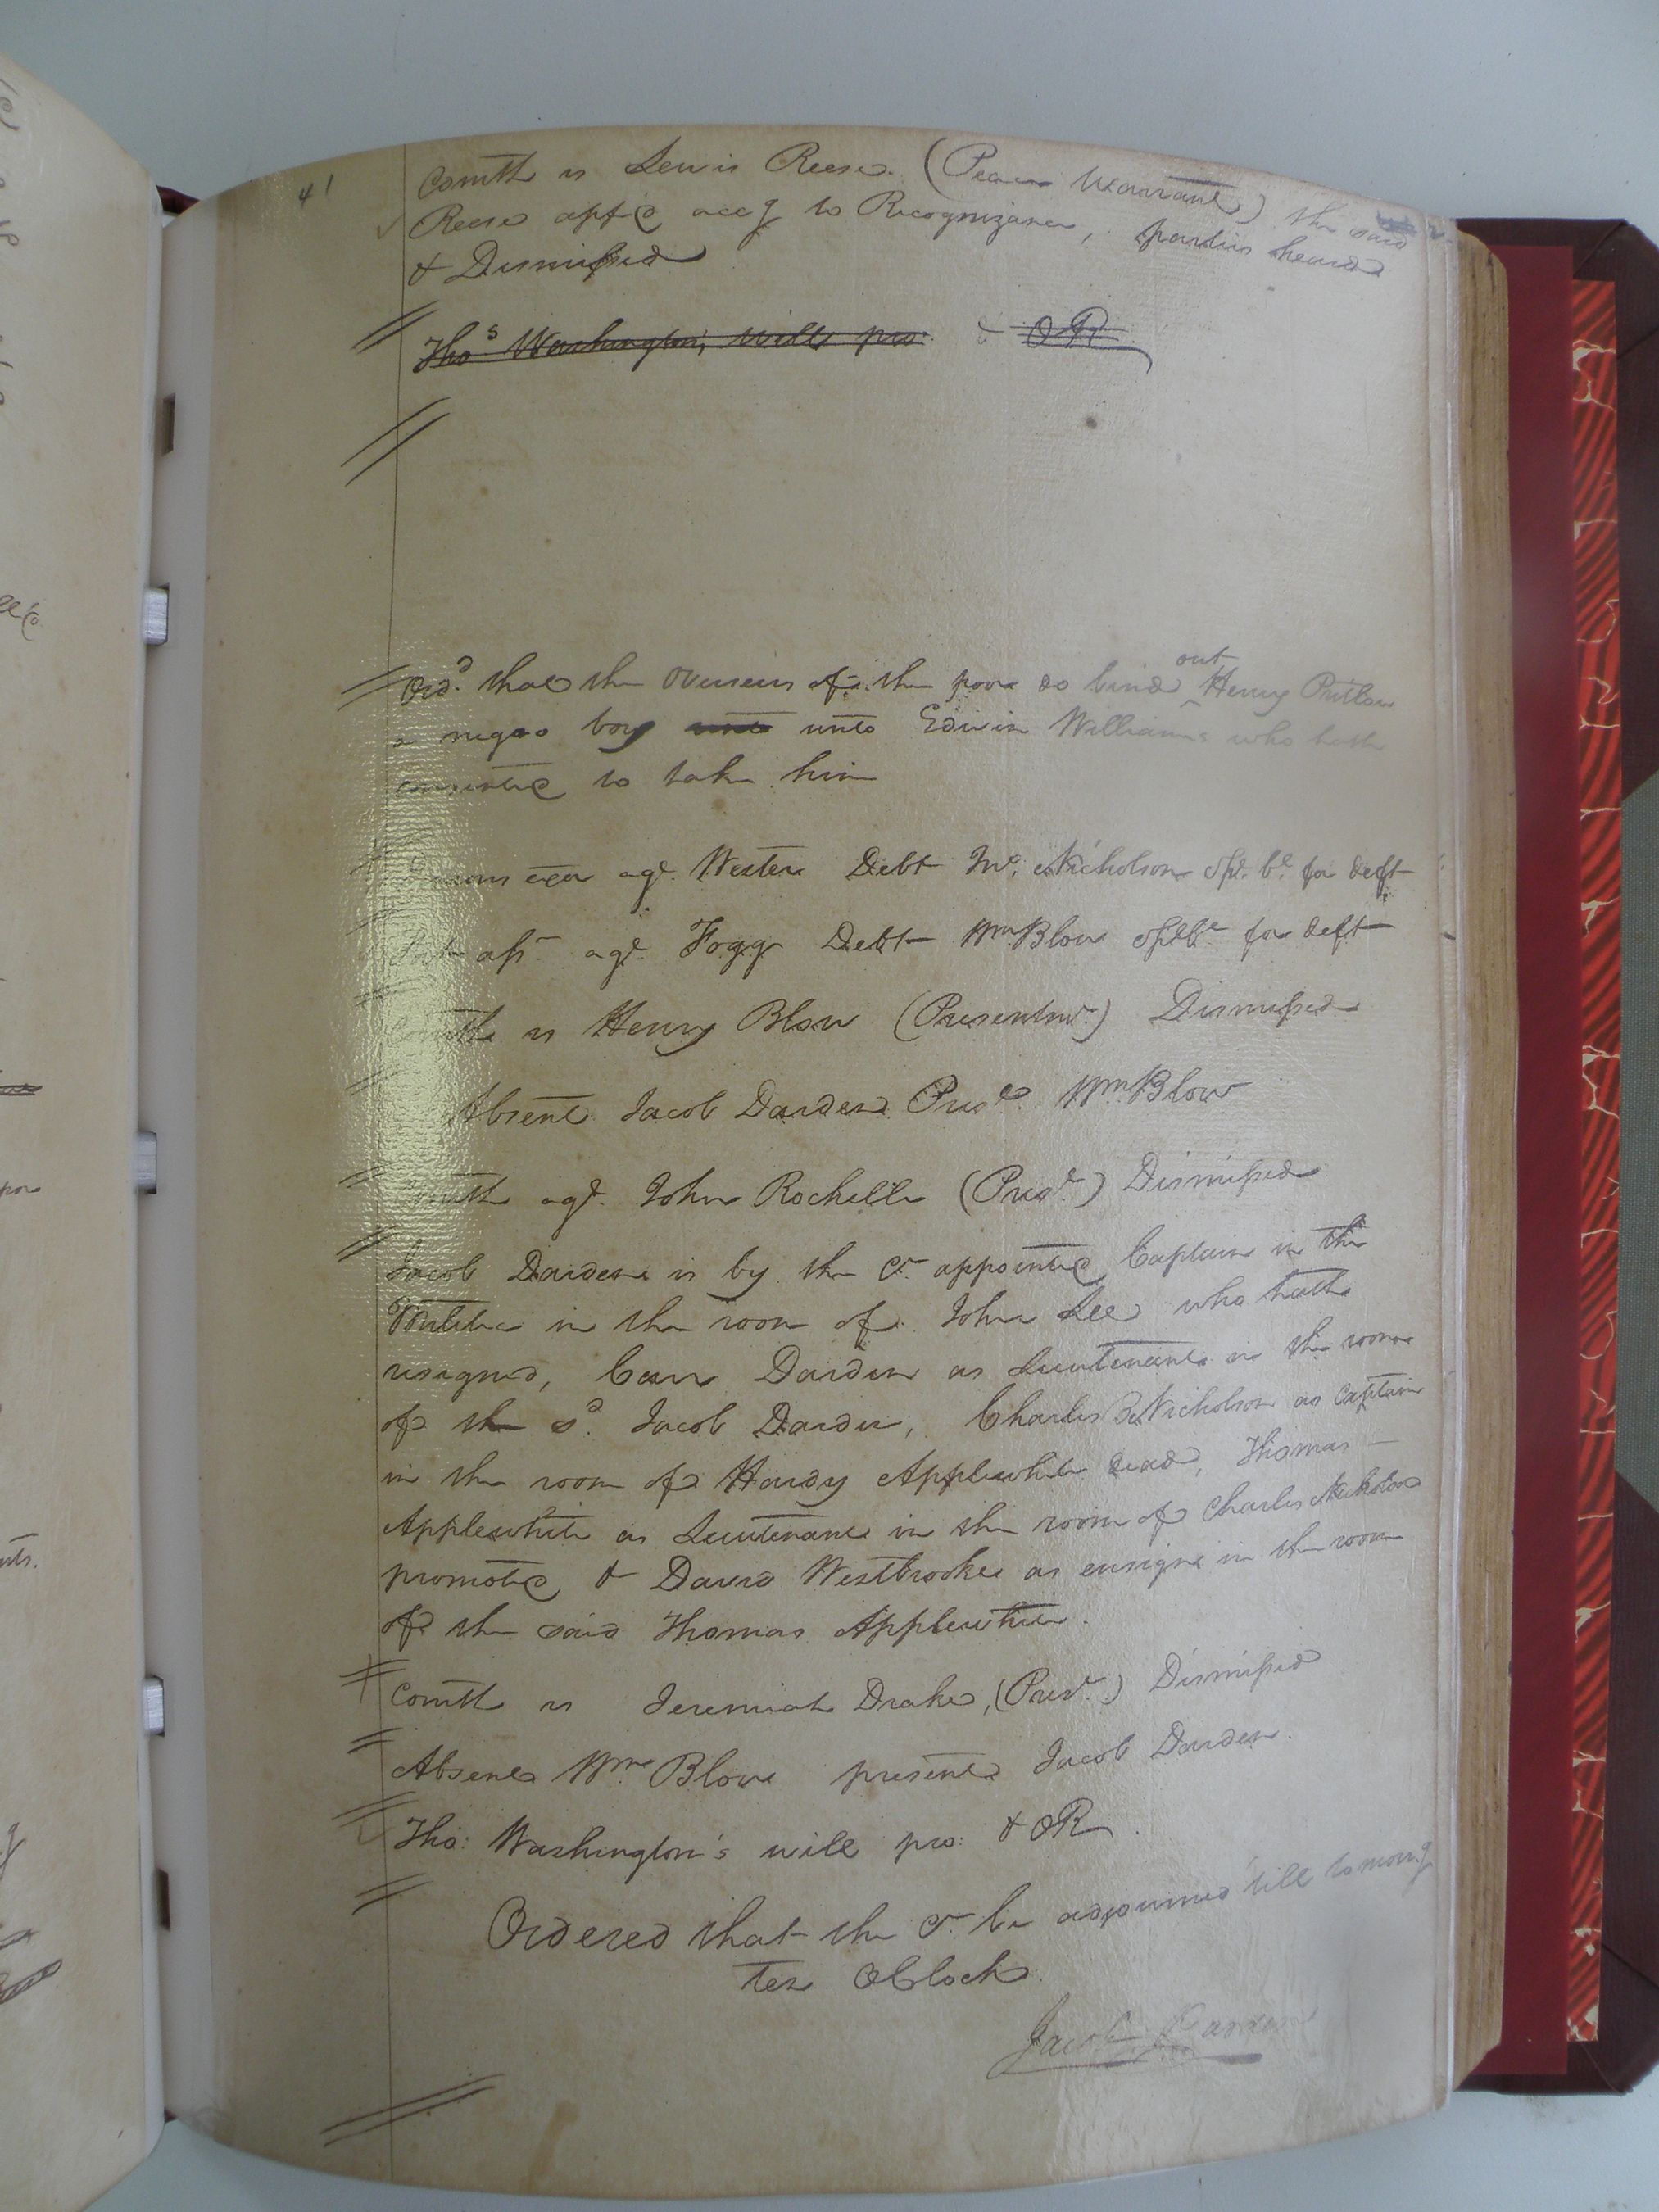 41
Comth vs Lewis Reese. (Peace Warrant) the said
Reese app'd accg to Recognizance, parties heard
& Dismissed
Thos Washington, will pro: & OR
Ord. that the Overseers of the poor do bind out Henry
a negro boy unto Edwin Williams who hath
consented to take him
exor agt. Wester Debt Jno. Nicholson Spl. be. for deft
ass. agt. Fogg Debt Wm Blow Spl be. for deft
Comth vs Henry Blow (Presentmt.) Dismissed
Absent Jacob Darden Prest. Wm. Blow
Comth agt. John Rochelle (Prest.) Dismissed
Jacob Darden is by the Ct. appointed Captain in the
Militia in the room of John Lee who hath
resigned, Carr Darden as Lieutenant in the room
of the sd. Jacob Darden, Charles B Nicholson as Captain
in the room of Hardy Applewhite dead, Thomas
Applewhite as Lieutenant in the room of Charles Nicholson
promoted & David Westbrooke as ensign in the room
of the said Thomas Applewhite.
Comth vs Jeremiah Drake, (Prest.) Dismissed
Absent Wm. Blow present Jacob Darden.
Tho: Washington's will pro: & OR
Ordered that the Ct. be adjourned till tomorrg
ten OClock
Jacob Darden